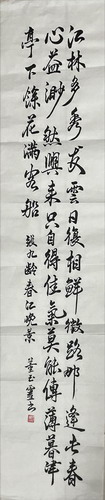 江林多秀發雲日復相鮮徵路那逢此春
心益渺然興來只自得佳氣莫能傳薄暮津
亭下餘花滿客船
張九齡春江晚景